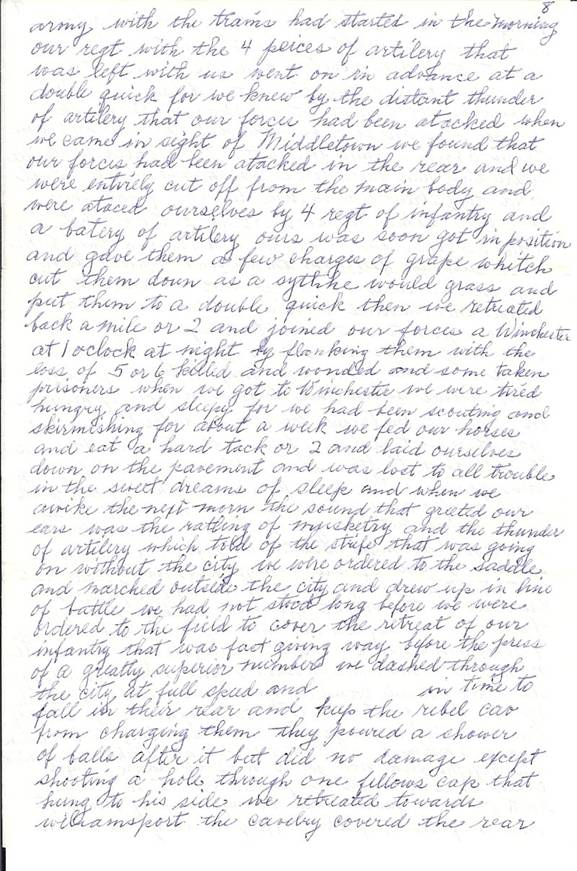 8
army with the trains had started in the morning
our regt with the 4 peices of artilery that
was left with us went on in advance at a
double quick for we knew by the distant thunder
of artilery that our forces had been atacked when
we came in sight of Middletown we found that
our forces had been atacked in the rear and we
were entirely cut off from the main body and
were ataced ourselves by 4 regt of infantry and
a batery of artilery ours was soon got in position
and gave them a few charges of grape whitch
cut them down as a sythe would grass and
put them to a double quick then we retreated
back a mile or 2 and joined our forces a Winchester
at 1 oclock at night by flanking them with the
loss of 5 or 6 killed and wonded and some taken
prisoners when we got to Winchester we were tired
hungry and sleepy for we had been scouting and
skirmishing for about a week we fed our horses
and eat a hard tack or 2 and laid ourselves
down on the pavement and was lost to all trouble
in the sweet dreams of sleep and when we
awike the next morn the sound that greeted our
ears was the rattling of musketry and the thunder
of artilery which told of the strife that was going
on without the city we were ordered to the saddle
and marched outside the city and drew up in line
of battle we had not stood long before we were
ordered to the field to cover the retreat of our
infantry that was fast giving way before the press
of a greatly superior numbers we dashed through
the city at full speed and in time to
fall in their rear and kup the rebel cav
from charging them they poured a shower
of balls after it but did no damage except
shooting a hole through one fellows cap that
hung to his side we retreated towards
williamsport the cavelry covered the rear